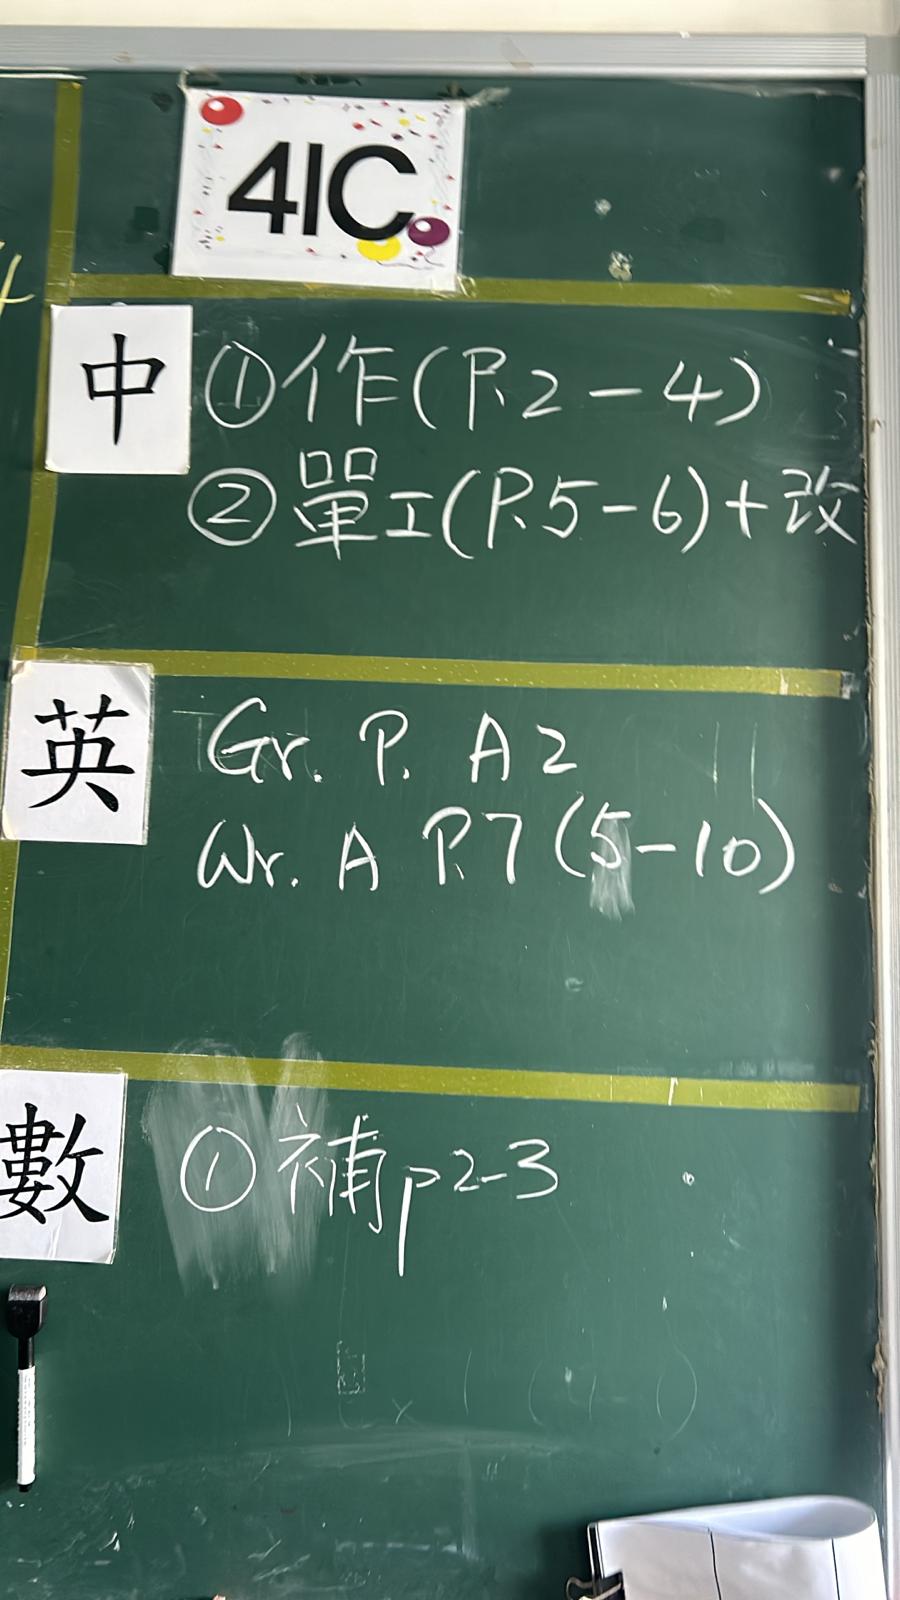 4IC
中
①作(P.2-4)
②單工(P.5-6)+改
英
Gr. P. A2
Wr. A P.7 (5-10)
數
①補p2-3